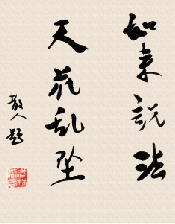 如来说法
天花乱坠
散人题